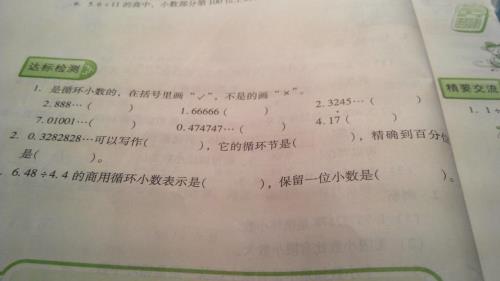 6. 5.6÷11的商中，小数部分第100位上
达标检测
精要交流
1. 是循环小数的，在括号里画“✓”，不是的画“×”。
1. 1÷
2.888…（　　） 1.66666（　　） 2.3245…（　　）
7.01001…（　　） 0.474747…（　　） 4.17（　　）
2. 0.3282828…可以写作（　　），它的循环节是（　　），精确到百分位
是（　　）。
6.48÷4.4的商用循环小数表示是（　　），保留一位小数是（　　）。